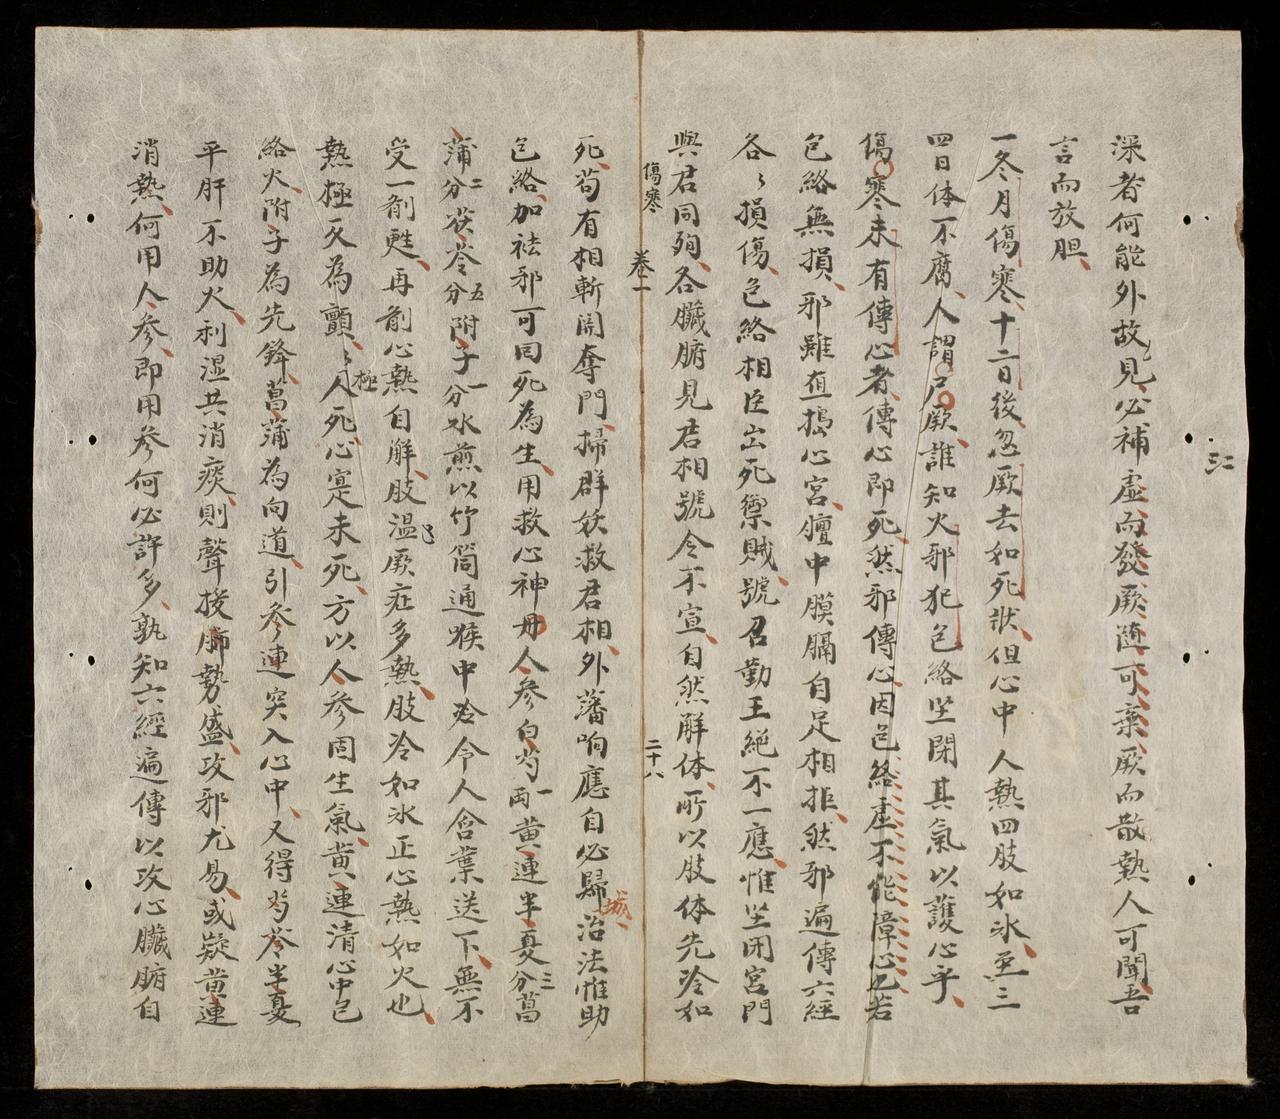 深者何能外故見必補虛而發厥隨可棄厥而散熱人可聞吾
言而放胆
一冬月傷寒十二日後忽厥去如死狀但心中人熱四肢如冰至三
四日体不腐人謂尸厥誰知火邪犯包絡坚閉其氣以護心乎
傷寒未有傳心者傳心即死然邪傳心因包絡虛不能障心也若
包絡無損邪雖直搗心宮膻中膜膈自足相拒然邪遍傳六經
各々損傷包絡相臣出死禦賊號召勤王絕不一應惟坚闭宮門
與君同殉各臟腑見君相號令不宣自然解体所以肢体先冷如
傷寒
卷一
二十八
死苟有相斬闗奪門掃群妖救君相外藩响應自必歸城治法惟助
包絡加祛邪可回死為生用救心神丹人參白芍一両黄連半夏三分菖
蒲二分茯苓五分附子一分水煎以竹筒通喉中冷令人含藥送下無不
受一剤甦再剤心熱自解肢温厥症多熱肢冷如冰正心熱如火也
熱極反為顫々極人死心寔未死方以人參固生氣黄連清心中包
絡火附子為先鋒菖蒲為向道引參連突入心中又得芍苓半夏
平肝不助火利湿共消痰則聲援肺勢盛攻邪尤易或疑黄連
消熱何用人參即用參何必許多孰知六經遍傳以攻心臟腑自